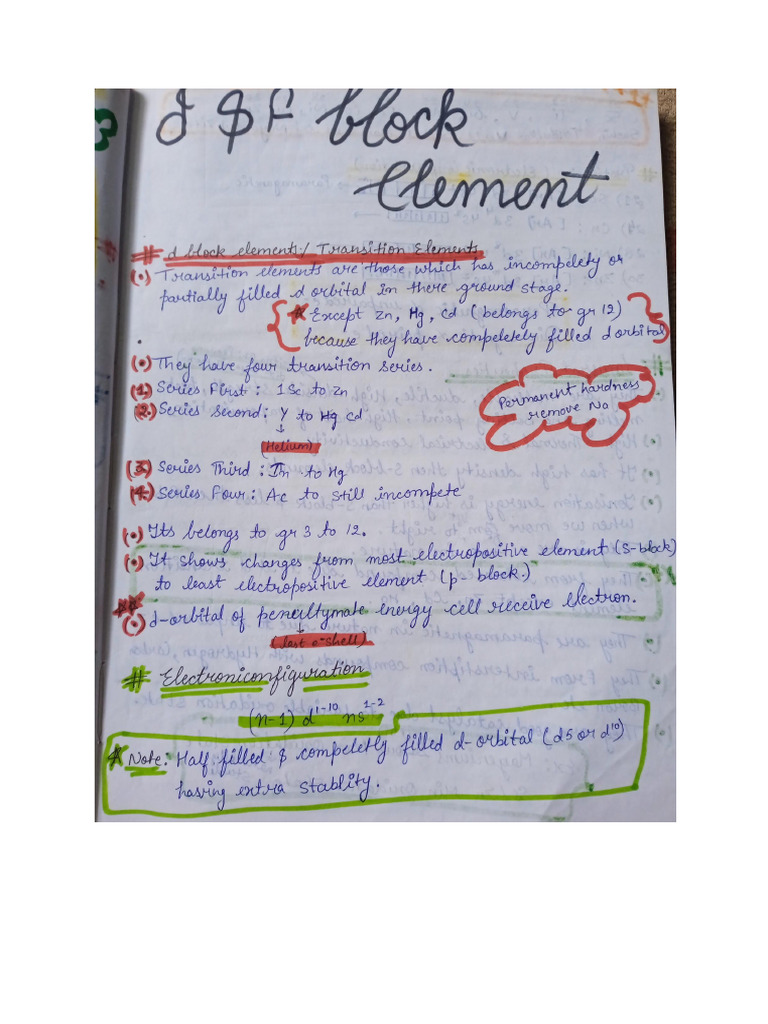 d & F block
Element
# d block elements:/ Transition Elements
(•) Transition elements are those which has incompelety or
partially filled d orbital In there ground stage.
* Except Zn, Hg, Cd (belongs to gr 12)
because they have compeletely filled d orbital
(•) They have four transition series.
(1.) Series First: 1Sc to Zn
(2.) Series Second: Y to Cd
(Helium)
Permanent hardness
remove Na
(3.) Series Third: In to Hg
(4.) Series Four: Ac to still incompete
(•) Its belongs to gr 3 to 12.
(•) It shows changes from most electropositive element (S-block)
to least electropositive element (p-block.)
(•) d-orbital of peneultymate energy cell receive Electron.
(last e⁻ shell)
# Electroniconfiguration
(n-1) d¹⁻¹⁰ ns¹⁻²
* Note: Half filled & compeletly filled d-orbital (d5 or d¹⁰)
having extra stablity.